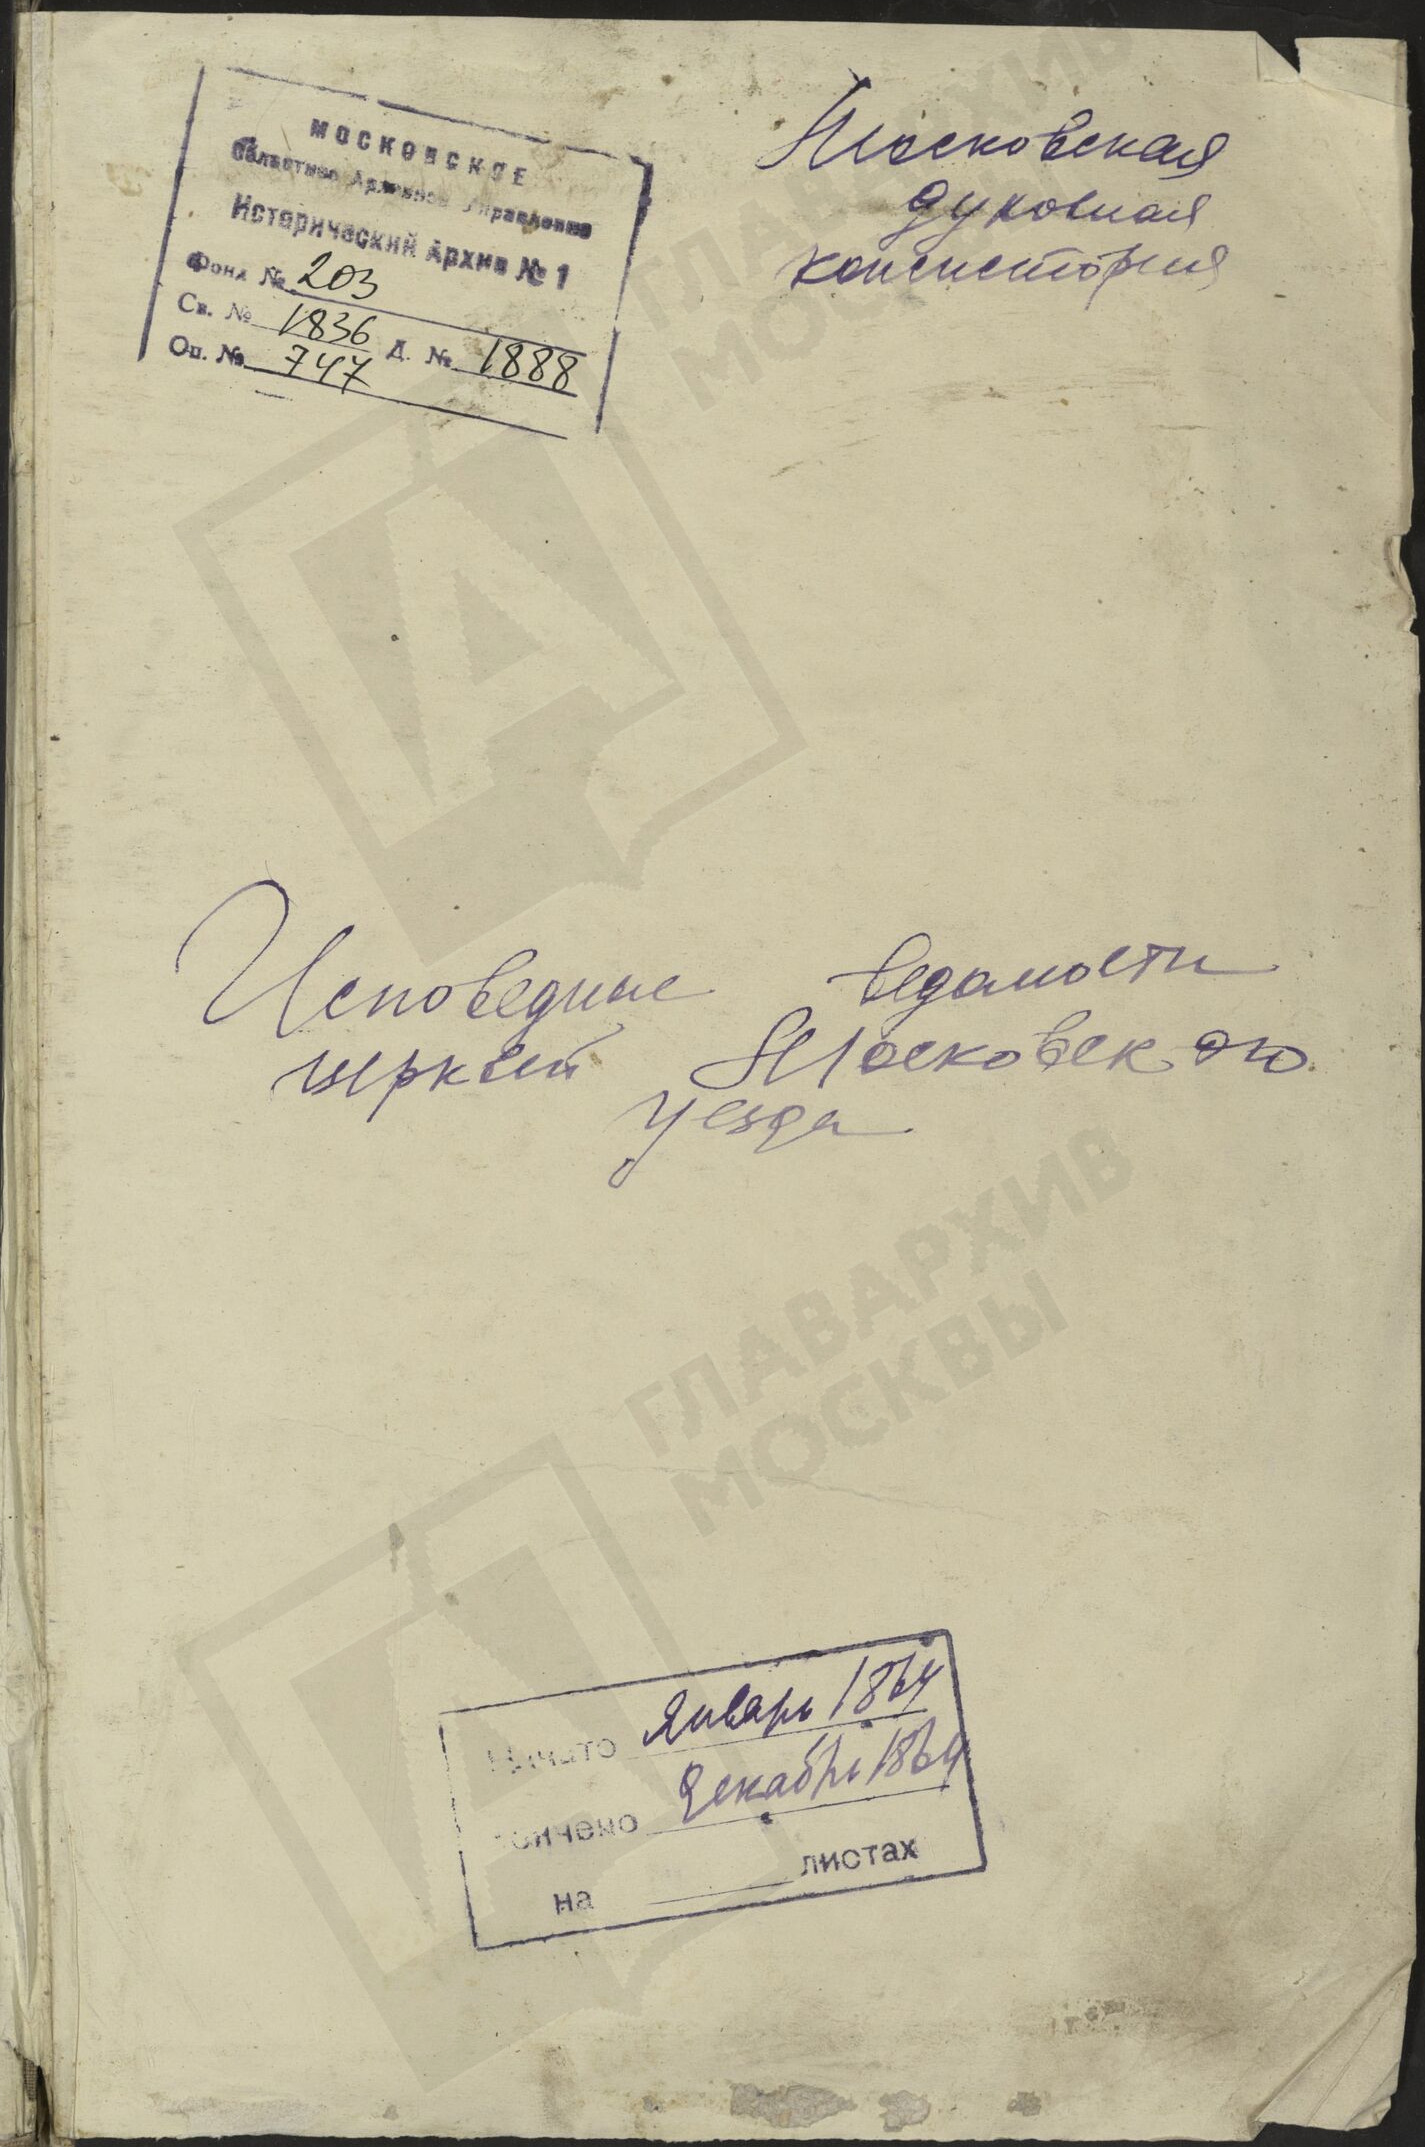 МОСКОВСКОЕ
Областное Архивное Управление
Исторический Архив № 1
Фонд № 203
Св. № 1836 Д. № 1888
Оп. № 747
Московская
духовная
консистория
Исповедные ведомости
церквей Московского
уезда
Начато Январь 1864
Окончено Декабрь 1864
на листах
ГЛАВАРХИВ
МОСКВЫ
ГЛАВАРХИВ
МОСКВЫ